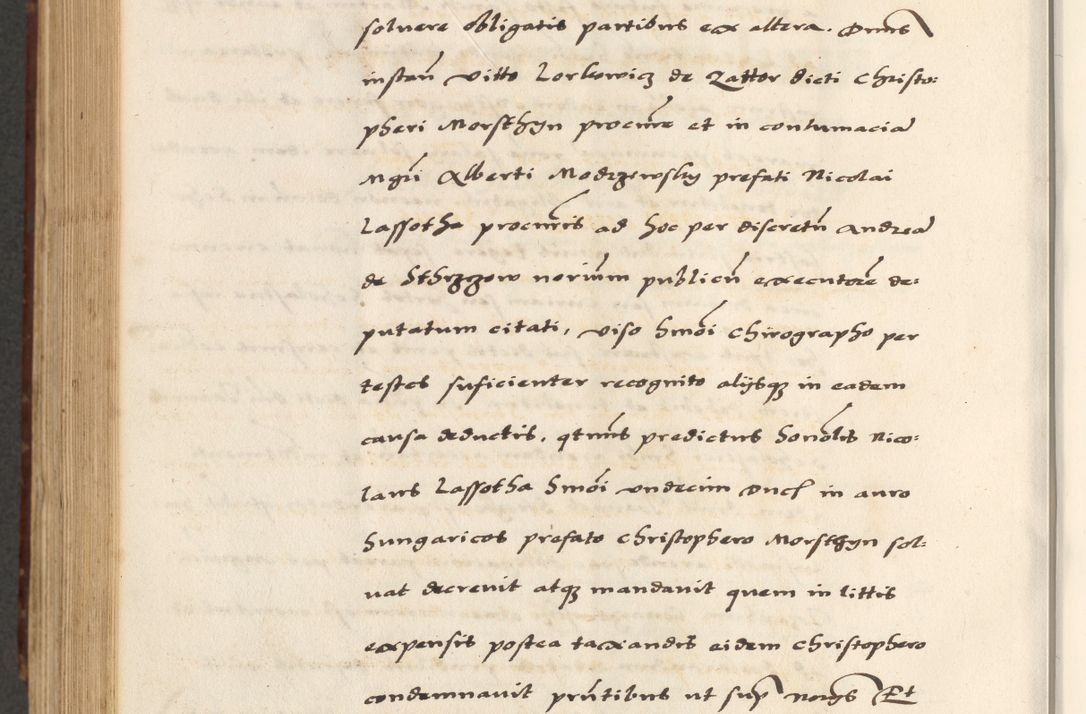 soluere obligatis partibus eax altera. Dnus
instan̄ Vitto Lorkowicz de Zattor dicti Christo:
pheri Morsthyn procure et in contumacia
Mgri Alberti Modrzewsky prefati Nicolai
Lassotha procuris ad hoc per discretū Andrea
de Sthrzzow noriūm publicū executorē de:
putatum citati, viso hmōi Chirographo per
testes suficienter recognito alijsqꝫ in eadem
causa deductis, qtnus predictus honōlis Nico:
laus Lassotha hmōi vndecim Duc̄ in auro
hungaricos prefato Christophero Morsthyn sol:
uat decreuit atqꝫ mandauit quem in littis
expensis postea taxandis eidem Christophero
condemnauit prn̄tibus ut supͣ Norijs Et